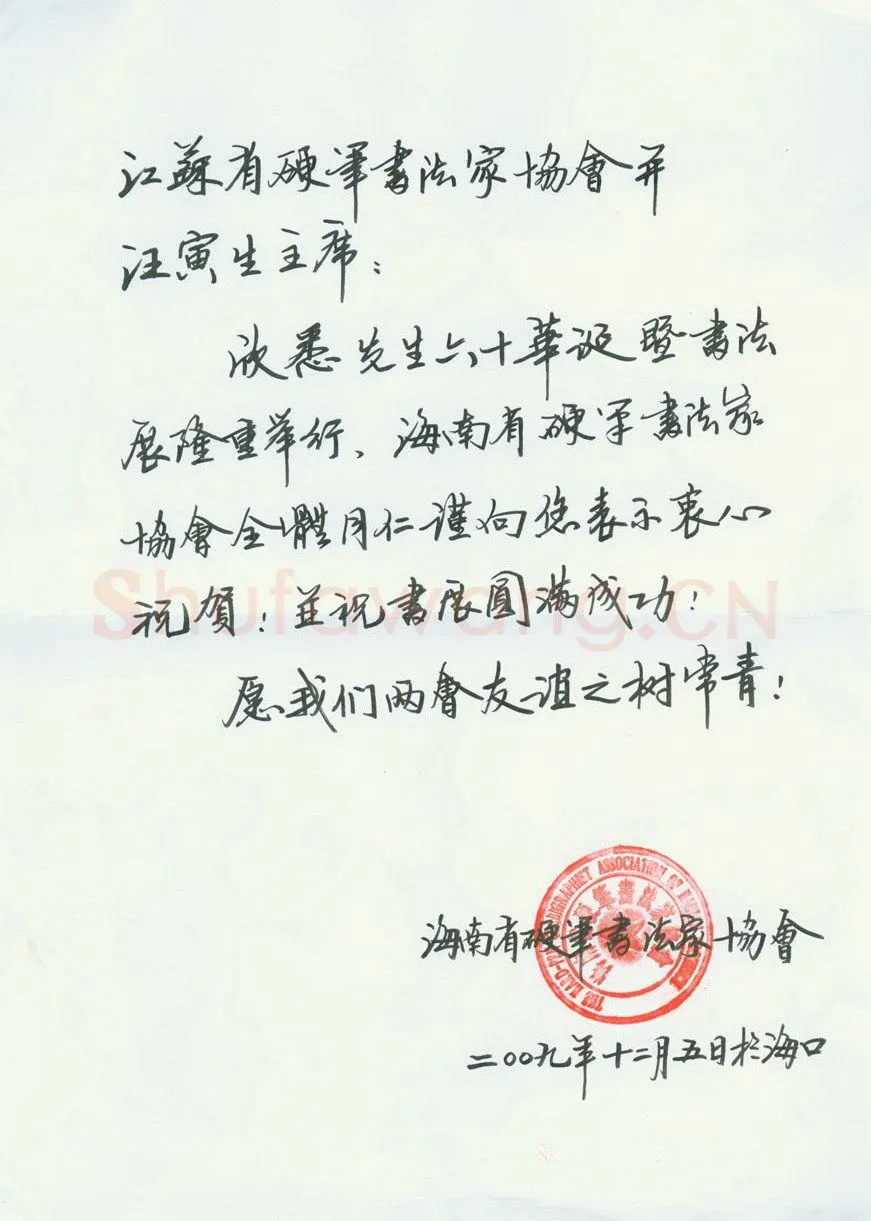 江蘇省硬筆書法家協會并
汪寅生主席：
欣悉先生六十華诞暨書法
展隆重举行、海南省硬笔書法家
協會全體同仁謹向您表示衷心
祝賀！並祝書展圓滿成功！
愿我们两會友谊之树常青！
Shufawang.CN
海南省硬筆書法家協會
二〇〇九年十二月五日於海口